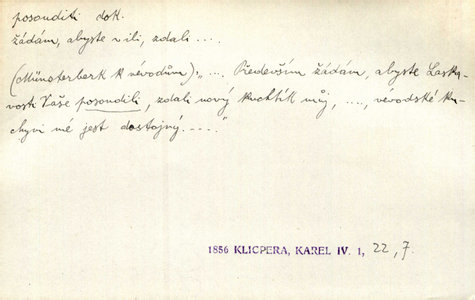 posouditi dok.
žádám, abyste vili, zdali ....
(Münsterberk k vévodům): „ .... Především žádám, abyste Laska-
vosti Vaše posoudili, zdali nový kuchtík můj, ...., vévodské ku-
chyni mé jest dostojný. – ... "
1856 KLICPERA, KAREL IV. 1, 22, 7.